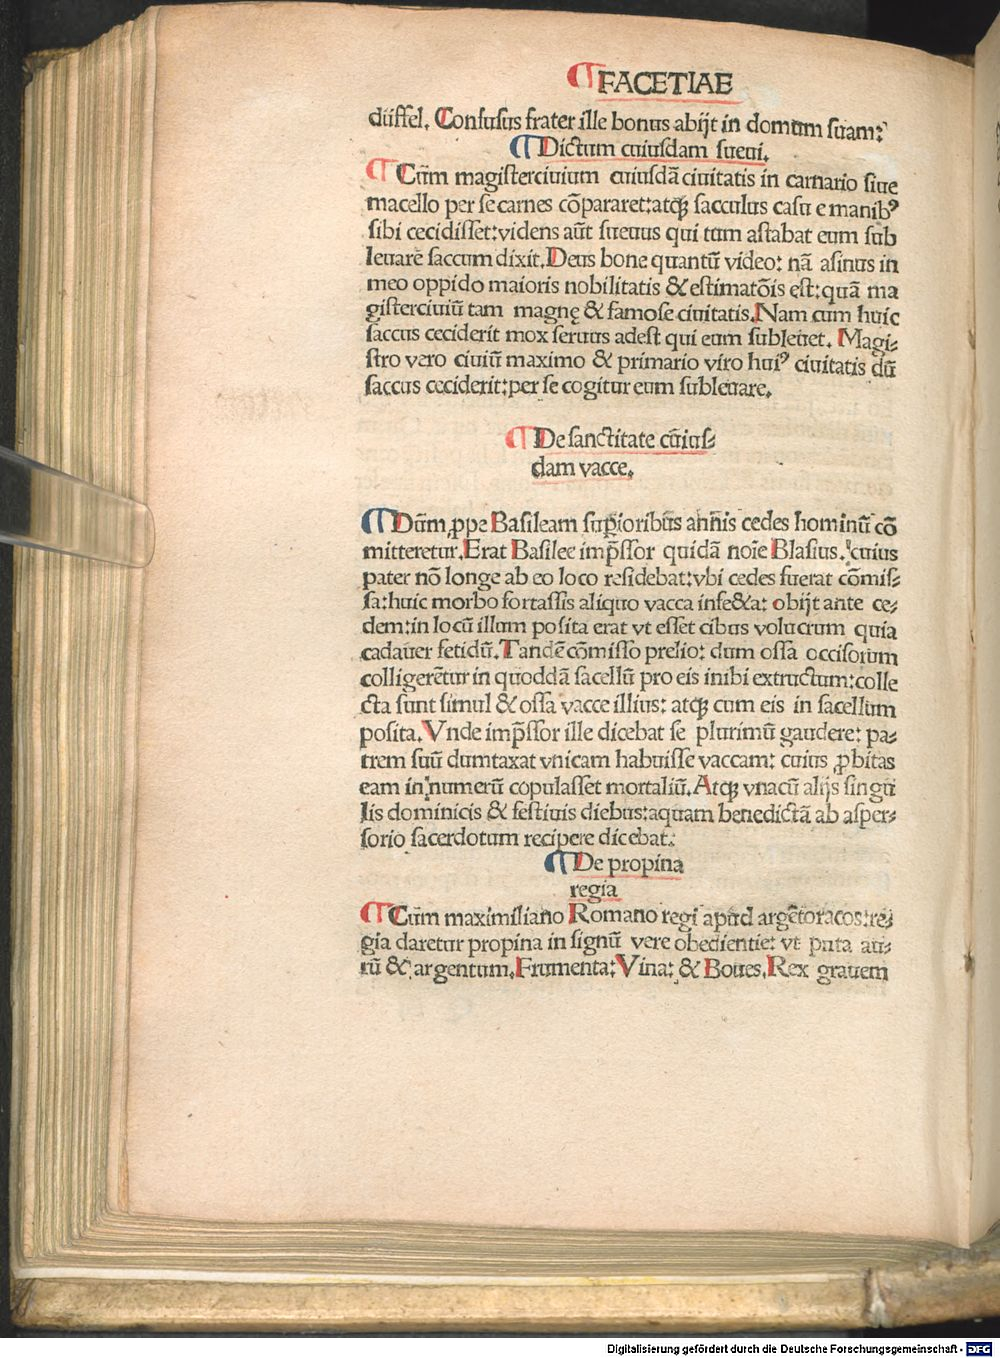 ¶FACETIAE
düffel. Confusus frater ille bonus abijt in domum suam:
¶Dictum cuiusdam sueui.
¶Cum magisterciuium cuiusdā ciuitatis in carnario siue
macello per se carnes cōpararet: atqꝫ sacculus casu e manibꝰ
sibi cecidisset: videns aūt sueuus qui tum astabat eum sub
leuare saccum dixit. Deus bone quantū video: nā asinus in
meo oppido maioris nobilitatis & estimatōis est: quā ma
gisterciuiū tam magnę & famose ciuitatis. Nam cum huic
saccus ceciderit mox seruus adest qui eum subleuet. Magi⸗
stro vero ciuiū maximo & primario viro huiꝰ ciuitatis dū
saccus ceciderit: per se cogitur eum subleuare.
¶De sanctitate cuius⸗
dam vacce.
¶Dum ꝓpe Basileam suꝑioribus annis cedes hominū cō
mitteretur. Erat Basilee imp̄ssor quidā noīe Blasius. cuius
pater nō longe ab eo loco residebat: vbi cedes fuerat cōmis⸗
sa: huic morbo fortassis aliquo vacca infe&a: obijt ante ce⸗
dem: in locū illum posita erat vt esset cibus volucrum quia
cadauer fetidū. Tandē cōmisso prelio: dum ossa occisorum
colligerētur in quoddā sacellū pro eis inibi extructum: colle
cta sunt simul & ossa vacce illius: atqꝫ cum eis in sacellum
posita. Vnde imp̄ssor ille dicebat se plurimū gaudere: pa⸗
trem suū dumtaxat vnicam habuisse vaccam: cuius ꝓbitas
eam in numerū copulasset mortaliū. Atqꝫ vnacū alijs singu
lis dominicis & festiuis diebus: aquam benedictā ab asper⸗
sorio sacerdotum recipere dicebat.
¶De propina
regia
¶Cum maximiliano Romano regi apud argētoracos: re⸗
gia daretur propina in signū vere obedientie: vt puta au⸗
rū & argentum. Frumenta: Vina: & Boues. Rex grauem
Digitalisierung gefördert durch die Deutsche Forschungsgemeinschaft - DFG